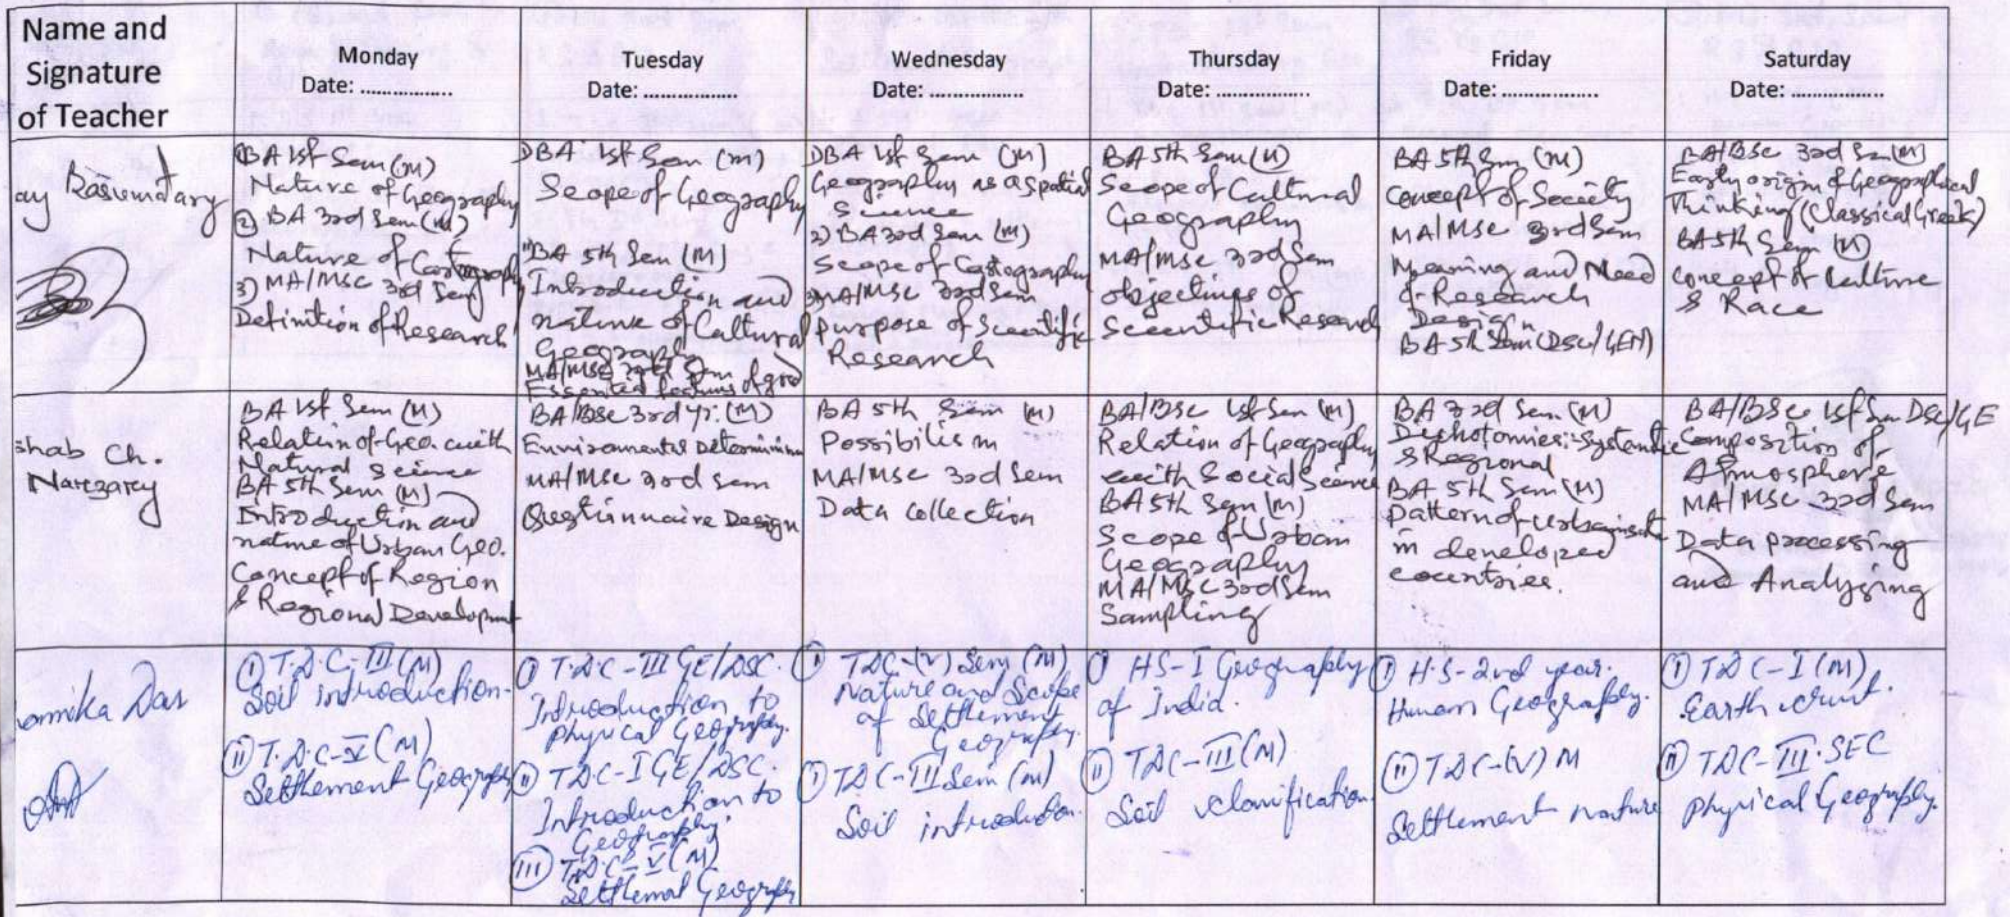 Name and
Signature
of Teacher
Monday
Date: ................
Tuesday
Date: ................
Wednesday
Date: ................
Thursday
Date: ................
Friday
Date: ................
Saturday
Date: ................
ay Basumatary
① BA 1st Sem (M)
Nature of Geography
② BA 3rd Sem (M)
Nature of Cartography
3) MA/MSc 3rd Sem
Definition of Research
1) BA 1st Sem (M)
Scope of Geography
BA 5th Sem (M)
Introduction and
nature of Cultural
Geography
MA/MSc 3rd Sem
Essential features of good
1) BA 1st Sem (M)
Geography as a spatial
Science
2) BA 3rd Sem (M)
Scope of Cartography
3) MA/MSc 3rd Sem
purpose of Scientific
Research
BA 5th Sem (M)
Scope of Cultural
Geography
MA/MSc 3rd Sem
objectives of
Scientific Research
BA 5th Sem (M)
Concept of Society
MA/MSc 3rd Sem
Meaning and Need
of Research
Design
BA 5th Sem (DSC/GEH)
BA/BSc 3rd Sem (M)
Early origin of Geographical
Thinking (Classical Greek)
BA 5th Sem (M)
Concept of Culture
& Race
shab Ch.
Narzary
BA 1st Sem (M)
Relation of Geo. with
Natural Science
BA 5th Sem (M)
Introduction and
nature of Urban Geo.
Concept of Region
& Regional Development
BA/BSc 3rd yr. (M)
Environmental Determinism
MA/MSc 3rd Sem
Questionnaire Design
BA 5th Sem (M)
Possibilism
MA/MSc 3rd Sem
Data Collection
BA/BSc 1st Sem (M)
Relation of Geography
with Social Science
BA 5th Sem (M)
Scope of Urban
Geography
MA/MSc 3rd Sem
Sampling
BA 3rd Sem (M)
Dichotomies: Systematic
& Regional
BA 5th Sem (M)
Pattern of
in developed
countries.
BA/BSc 1st Sem DSC/GE
Composition of
Atmosphere
MA/MSc 3rd Sem
Data processing
and Analysing
omika Das
① T.D.C-III (M)
Soil introduction.
② T.D.C-V (M)
Settlement Geography
① T.D.C-III GE/DSC.
Introduction to
Physical Geography.
② TDC-I GE/DSC.
Introduction to
Geography.
③ TDC-V (M)
Settlemat Geography
① TDC-(V) Sem (M)
Nature and Scope
of Settlement
Geography.
① TDC-III Sem (M)
Soil introduction.
① HS-I Geography
of India.
② TDC-III (M)
Soil classification.
① H.S-2nd year.
Human Geography.
② TDC-(V) M
Settlement nature
① TDC-I (M)
Earth crust.
② TDC-III. SEC
Physical Geography.